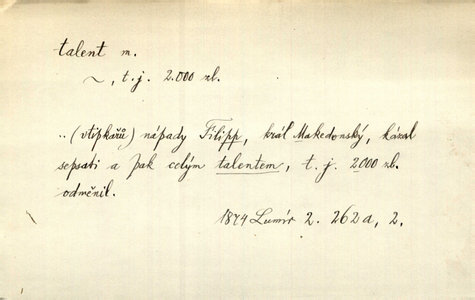 talent m.
~, t. j. 2.000 zl.
..(vtipkářů) nápady Filipp, král Makedonský, kázal
sepsati a pak celým talentem, t. j. 2000 zl.
odměnil.
1874 Lumír 2. 262a, 2.